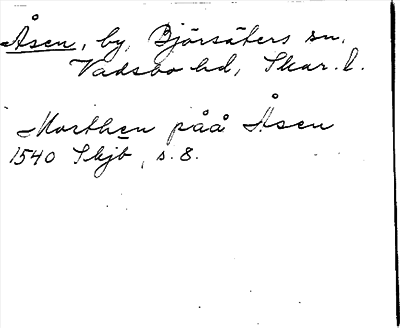 Åsen, by, Björsäters sn,
Vadsbo hd, Skar. l.
Morthen påå Åsen
1540 Skjb, s. 8.